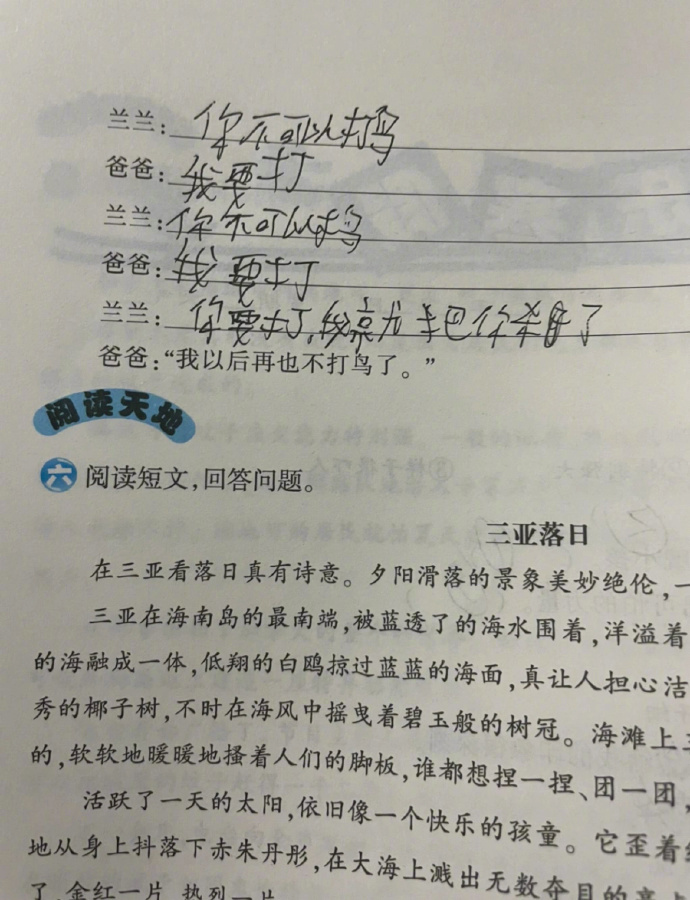 兰兰:你不可以打鸟
爸爸:我要打
兰兰:你不可以打鸟
爸爸:我要打
兰兰:你要打,我就把你杀了
爸爸:“我以后再也不打鸟了。”
阅读天地
六 阅读短文,回答问题。
三亚落日
在三亚看落日真有诗意。夕阳滑落的景象美妙绝伦,一
三亚在海南岛的最南端,被蓝透了的海水围着,洋溢着
的海融成一体,低翔的白鸥掠过蓝蓝的海面,真让人担心洁
秀的椰子树,不时在海风中摇曳着碧玉般的树冠。海滩上
的,软软地暖暖地搔着人们的脚板,谁都想捏一捏、团一团,
活跃了一天的太阳,依旧像一个快乐的孩童。它歪着
地从身上抖落下赤朱丹彤,在大海上溅出无数夺目的亮
了,金红一片,热烈一片